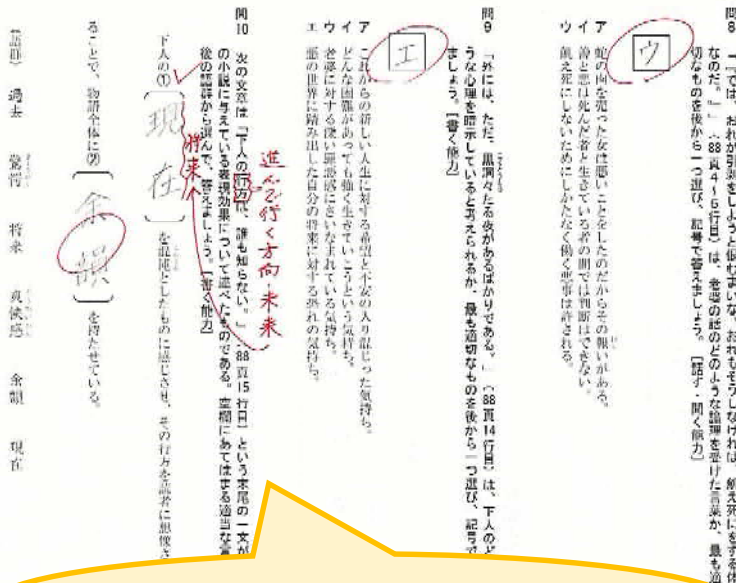 問8
「『では、おれが引剥をしようと恨むまいな。おれもそうしなければ、餓え死にをする体
なのだ。』」(88頁4~5行目)は、老婆の話のどのような論理を受けた言葉か、最も適
切なものを後から一つ選び、記号で答えましょう。[話す・聞く能力]
ウ
ア 蛇の肉を売った女は悪いことをしたのだからその報いがある。
イ 善と悪は死んだ者と生きている者の間では判断はできない。
ウ 餓え死にしないためにしかたなく働く悪事は許される。
問9
「外には、ただ、黒洞々たる夜があるばかりである。」(88頁14行目)は、下人のど
うな心理を暗示していると考えられるか、最も適切なものを後から一つ選び、記号で
ましょう。[書く能力]
エ
ア これからの新しい人生に対する希望と不安の入り混じった気持ち。
イ どんな困難があっても強く生きていこうという気持ち。
ウ 老婆に対する深い罪悪感にさいなまれている気持ち。
エ 悪の世界に踏み出した自分の将来に対する恐れの気持ち。
進んで行く方向・未来
問10
次の文章は「下人の行方は、誰も知らない。」(88頁15行目)という末尾の一文が
の小説に与えている表現効果について述べたものである。空欄にあてはまる適当な言
後の語群から選んで、答えましょう。[書く能力]
将来
下人の①〔現在〕を混沌としたものに感じさせ、その行方を読者に想像さ
ることで、物語全体に②〔余韻〕を持たせている。
(語群) 過去 驚愕 将来 爽快感 余韻 現在